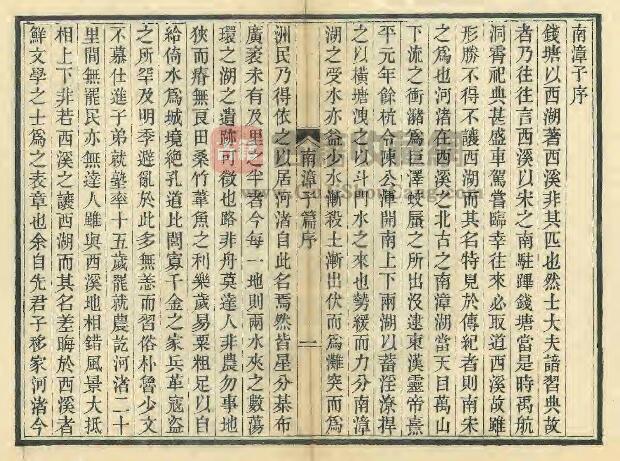 南漳子序
錢塘以西湖著西溪非其匹也然士大夫語習典故
者乃往往言西溪以宋之南駐蹕錢塘當是時禹航
洞霄祀典甚盛車駕嘗臨幸往來必取道西溪故雖
形勝不得不讓西湖而其名特見於傳紀者則南宋
之為也河渚在西溪之北古之南漳湖當天目萬山
下流之衝瀦為巨澤蛟蜃之所出沒逮東漢靈帝熹
平元年餘杭令陳公渾開南上下兩湖以蓄淫潦捍
之以橫塘洩之以斗門水之來也勢緩而力分南漳
湖之受水亦益少水漸殺土漸出伏而為灘突而為
南漳子篇序
一
洲民乃得依之以居河渚自此名焉然皆星分棊布
廣袤未有及里之半者今每一地則兩水夾之數蕩
環之湖之遺跡可徵也路非丹莫達人非農勿事地
狹而瘠無良田桑竹華魚之利樂歲易粟粗足以自
給倚水為城境絕孔道比閭寡千金之家兵革寇盜
之所罕及明季避亂於此多無恙而習俗朴魯少文
不慕仕進子弟就塾率十五歲罷就農訖河渚二十
里間無罷民亦無達人雖與西溪地相錯風景大抵
相上下非若西溪之讓西湖而其名差晦於西溪者
鮮文學之士為之表章也余自先君子移家河渚今